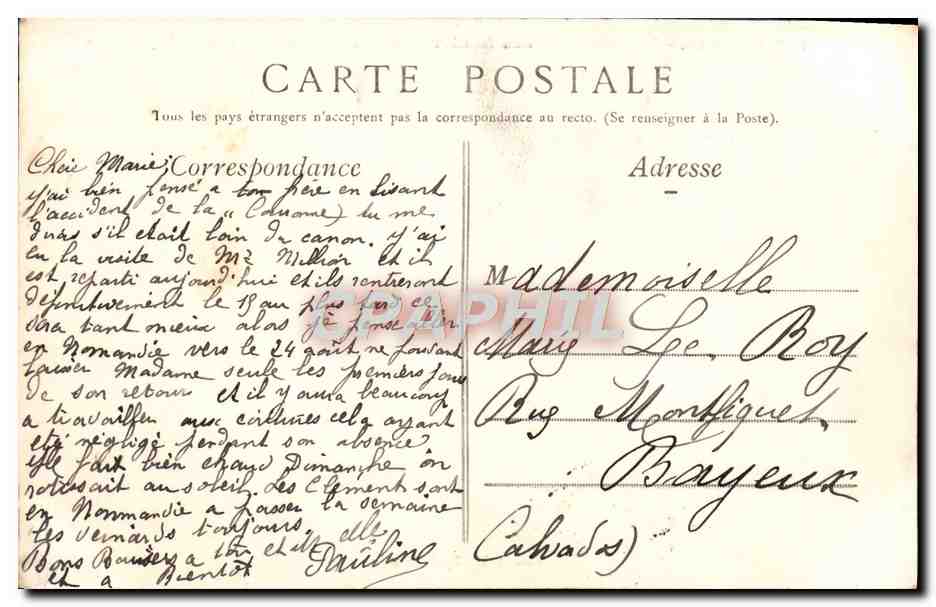 CARTE POSTALE
Tous les pays étrangers n'acceptent pas la correspondance au recto. (Se renseigner à la Poste).
Correspondance
Chère Marie,
j'ai bien pensé a ton frère en lisant
l'accident de la "Couronne) tu me
diras s'il etait loin du canon. j'ai
eu la visite de Mr et il
est reparti aujourd'hui et ils rentreront
définitivement le 19 au plus tard ce
sera tant mieux alors je pense aller
en Normandie vers le 24 août ne pouvant
laisser Madame seule les premiers jours
de son retour et il y aura beaucoup
a travailler aux cela ayant
eté négligé pendant son absence
Il fait bien chaud Dimanche on
rotissait au soleil. Les Clément sont
en Normandie a passer la semaine
les veinards toujours.
Bons Baisers a toi et
et a Bientôt Pauline
CPAPHIL
Adresse
Mademoiselle
Marie Le Roy
Rue Montfiquet
Bayeux
Calvados)